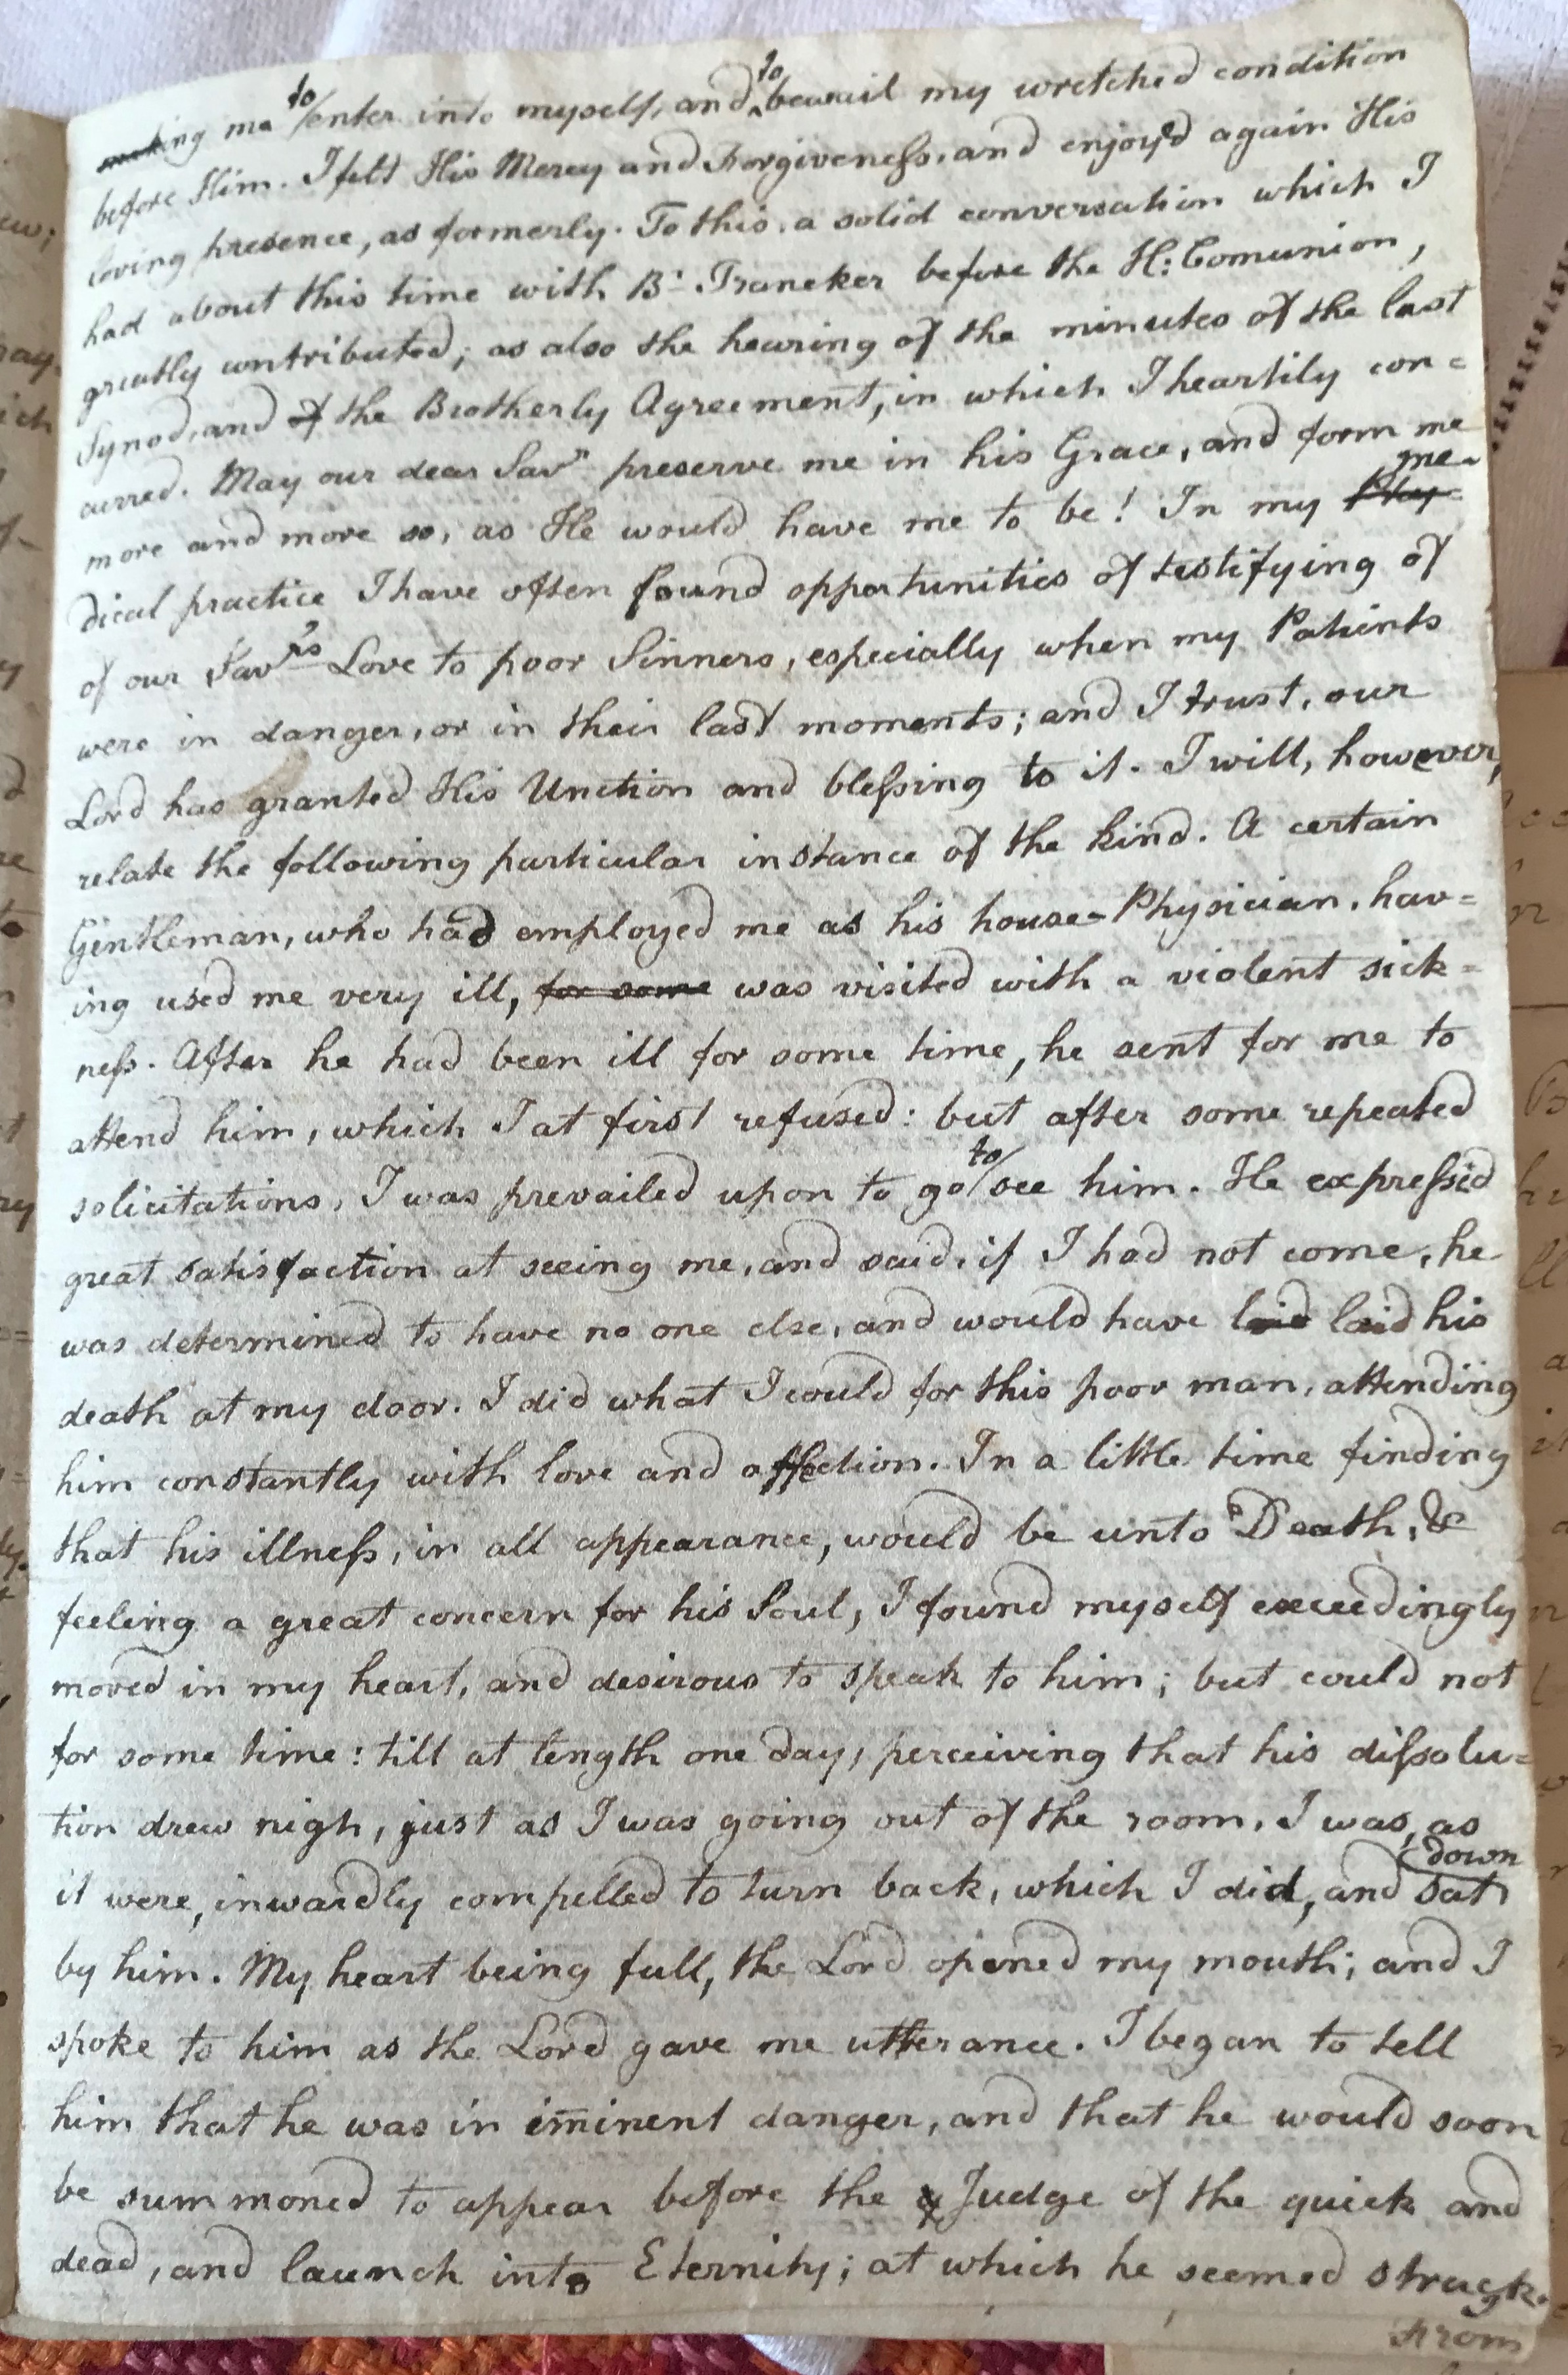 making me to enter into myself, and to bewail my wretched condition
before Him. I felt His Mercy and Forgiveneſs, and enjoy'd again His
loving presence, as formerly. To this, a solid conversation which I
had about this time with Br. Traneker before the H: Com̄union,
greatly contributed; as also the hearing of the minutes of the last
Synod, and of the Brotherly Agreement, in which I heartily con=
curred. May our dear Savr. preserve me in his Grace, and form me
more and more so, as He would have me to be! In my Phy= me=
dical practice I have often found opportunities of testifying of
of our Savr's Love to poor Sinners, especially when my Patients
were in danger, or in their last moments; and I trust, our
Lord has granted His Unction and bleſsing to it. I will, however,
relate the following particular instance of the kind. A certain
Gentleman, who had employed me as his house-Physician, hav=
ing used me very ill, for some was visited with a violent sick=
neſs. After he had been ill for some time, he sent for me to
attend him, which I at first refused: but after some repeated
solicitations, I was prevailed upon to go to see him. He expreſsed
great satisfaction at seeing me, and said, if I had not come, he
was determined to have no one else, and would have laid laid his
death at my door. I did what I could for this poor man, attending
him constantly with love and affection. In a little time finding
that his illneſs, in all appearance, would be unto Death, &
feeling a great concern for his Soul, I found myself exceedingly
moved in my heart, and desirous to speak to him; but could not
for some time: till at length one day, perceiving that his diſsolu=
tion drew nigh, just as I was going out of the room, I was, as
it were, inwardly compelled to turn back, which I did, and sat down
by him. My heart being full, the Lord opened my mouth; and I
spoke to him as the Lord gave me utterance. I began to tell
him that he was in im̄inent danger, and that he would soon
be summoned to appear before the Judge of the quick and
dead, and launch into Eternity; at which he seemed struck.
From